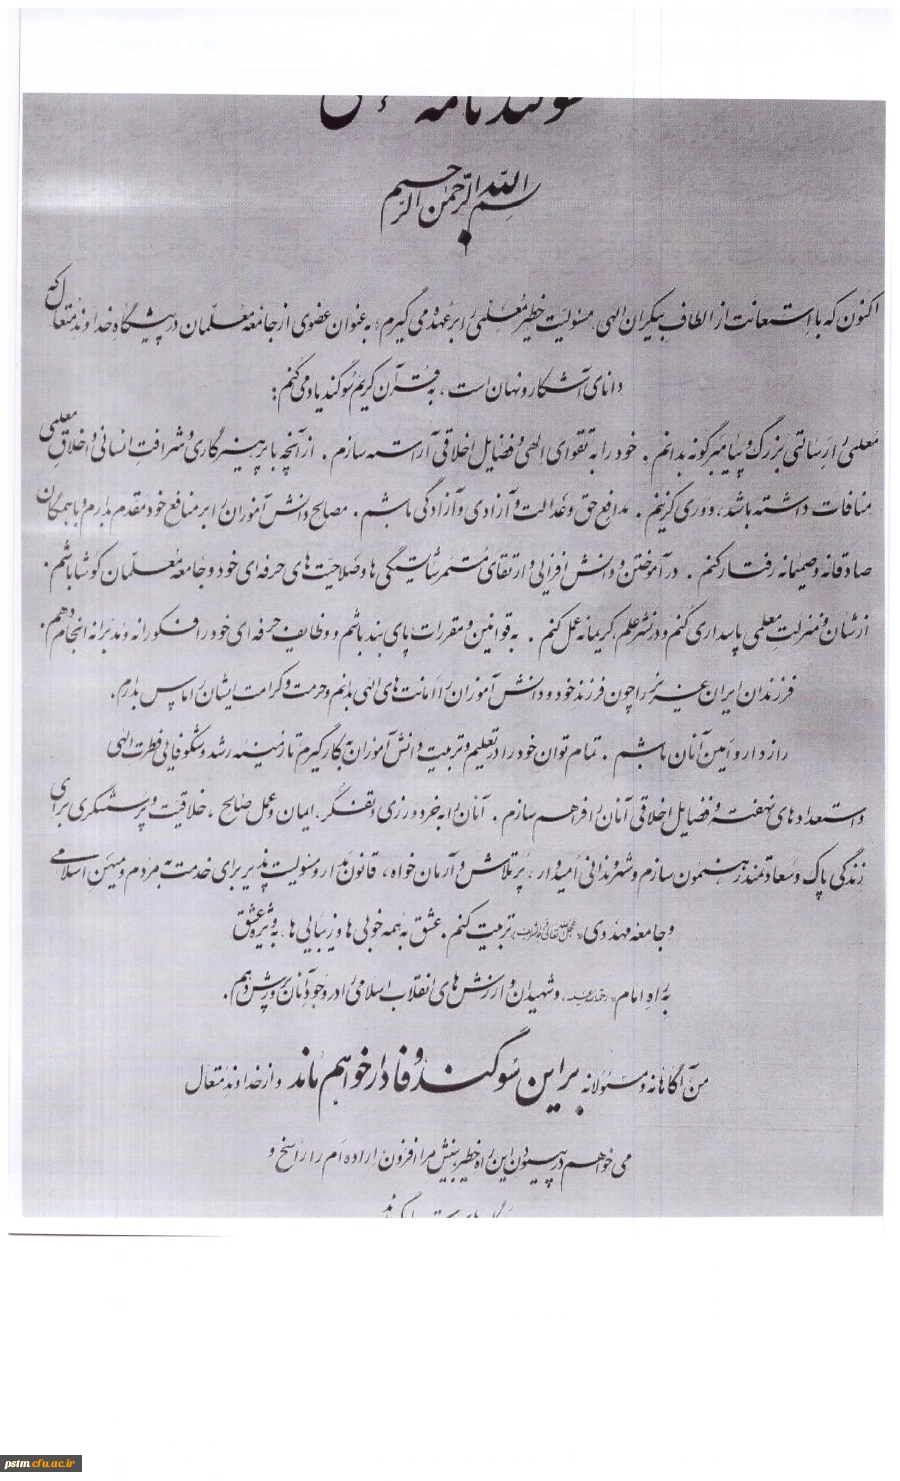 سوگندنامه
بسم الله الرحمن الرحیم
اکنون که با استعانت از الطاف بیکران الهی، مسئولیت خطیر معلمی را بر عهده می گیرم؛ به عنوان عضوی از جامعه معلمان در پیشگاه خداوند متعال که
دانای آشکار و نهان است، به قرآن کریم سوگند یاد می کنم:
معلمی را رسالتی بزرگ و پیامبرگونه بدانم. خود را به تقوای الهی و فضایل اخلاقی آراسته سازم. از آنچه با پرهیزگاری و شرافت انسانی و اخلاق معلمی
منافات داشته باشد، دوری گزینم. مدافع حق و عدالت و آزادی و آزادگی باشم. مصالح دانش آموزان را بر منافع خود مقدم بدارم و با همگان
صادقانه و صمیمانه رفتار کنم. در آموختن و دانش افزایی و ارتقای مستمر شایستگی ها و صلاحیت های حرفه ای خود و جامعه معلمان کوشا باشم.
از شان و منزلت معلمی پاسداری کنم و در نشر علم، کریمانه عمل کنم. به قوانین و مقررات پای بند باشم و وظایف حرفه ای خود را فکورانه و مدبرانه انجام دهم.
فرزندان ایران عزیز را چون فرزند خود و دانش آموزان را امانت های الهی بدانم و حرمت و کرامت ایشان را پاس بدارم.
رازدار و امین آنان باشم. تمام توان خود را در تعلیم و تربیت دانش آموزان به کار گیرم تا زمینه رشد و شکوفایی فطرت الهی
و استعدادهای نهفته و فضایل اخلاقی آنان را فراهم سازم. آنان را به خردورزی و تفکر، ایمان و عمل صالح، خلاقیت و پرسشگری برای
زندگی پاک و سعادتمند رهنمون سازم و شهروندانی امیدوار، پرتلاش و آرمان خواه، قانون مدار و مسئولیت پذیر برای خدمت به مردم و میهن اسلامی
و جامعه مهدوی (عجل الله تعالی فرجه الشریف) تربیت کنم. عشق به همه خوبی ها و زیبایی ها، به ویژه عشق
به راه امام (رحمة الله علیه) و شهیدان و ارزش های انقلاب اسلامی را در وجود آنان پرورش دهم.
من آگاهانه و مسئولانه بر این سوگند وفادار خواهم ماند و از خداوند متعال
می خواهم در پیمودن این راه خطیر بینش مرا افزون، اراده ام را راسخ و
pstm.cfu.ac.ir